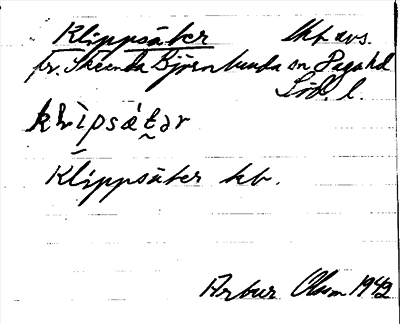 Klippsäter Hk. avs.
fr. Skeenda Björnlunda sn Daga hd
Söd. l.
khipsätər
Klippsäter kb.
Arbur Olsson 1942